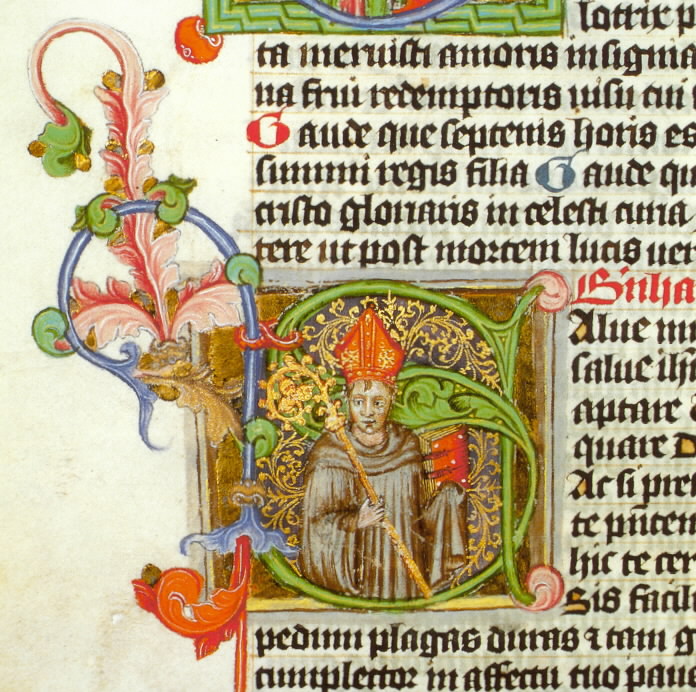 lotrix p
ta meruisti amoris insignia
na frui redemptoris uisu cui
Gaude que septenis horis es
summi regis filia Gaude qu
cristo gloriaris in celesti curia
tere ut post mortem lucis uer
Alue m
salue ih
aptare
quare D
Ac si pre
te p̄sen
hic te cer
Sis facil
pedum plagas duras ⁊ tam g
cumplector in affectu tuo paue